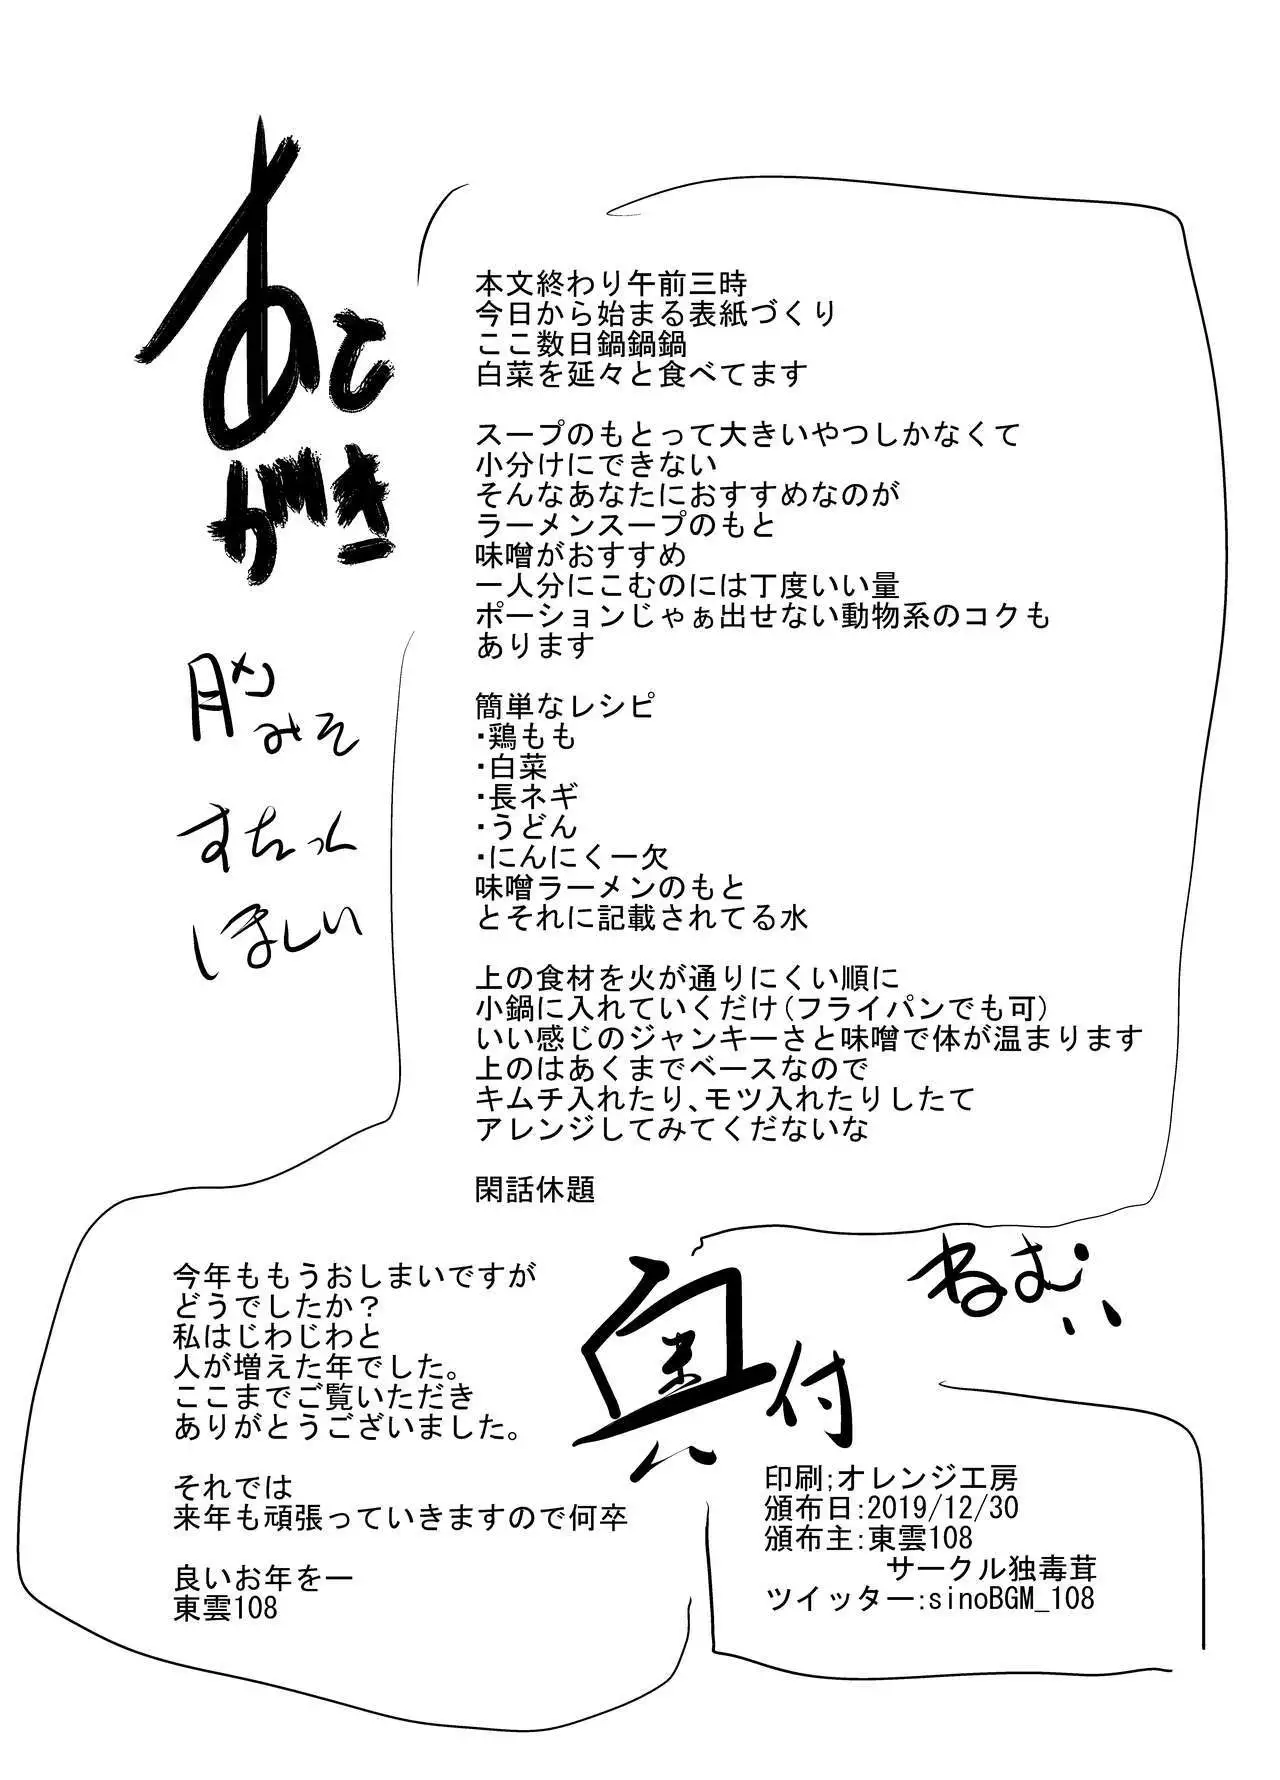 あとがき
本文終わり午前三時
今日から始まる表紙づくり
ここ数日鍋鍋鍋
白菜を延々と食べてます
スープのもとって大きいやつしかなくて
小分けにできない
そんなあなたにおすすめなのが
ラーメンスープのもと
味噌がおすすめ
一人分にこむのには丁度いい量
ポーションじゃぁ出せない動物系のコクも
あります
簡単なレシピ
・鶏もも
・白菜
・長ネギ
・うどん
・にんにく一欠
味噌ラーメンのもと
とそれに記載されてる水
上の食材を火が通りにくい順に
小鍋に入れていくだけ(フライパンでも可)
いい感じのジャンキーさと味噌で体が温まります
上のはあくまでベースなので
キムチ入れたり、モツ入れたりしたて
アレンジしてみてくだないな
閑話休題
みそ
すちっく
ほしい
今年ももうおしまいですが
どうでしたか?
私はじわじわと
人が増えた年でした。
ここまでご覧いただき
ありがとうございました。
それでは
来年も頑張っていきますので何卒
良いお年をー
東雲108
ねむい
奥付
印刷;オレンジ工房
頒布日:2019/12/30
頒布主:東雲108
サークル独毒茸
ツイッター:sinoBGM_108